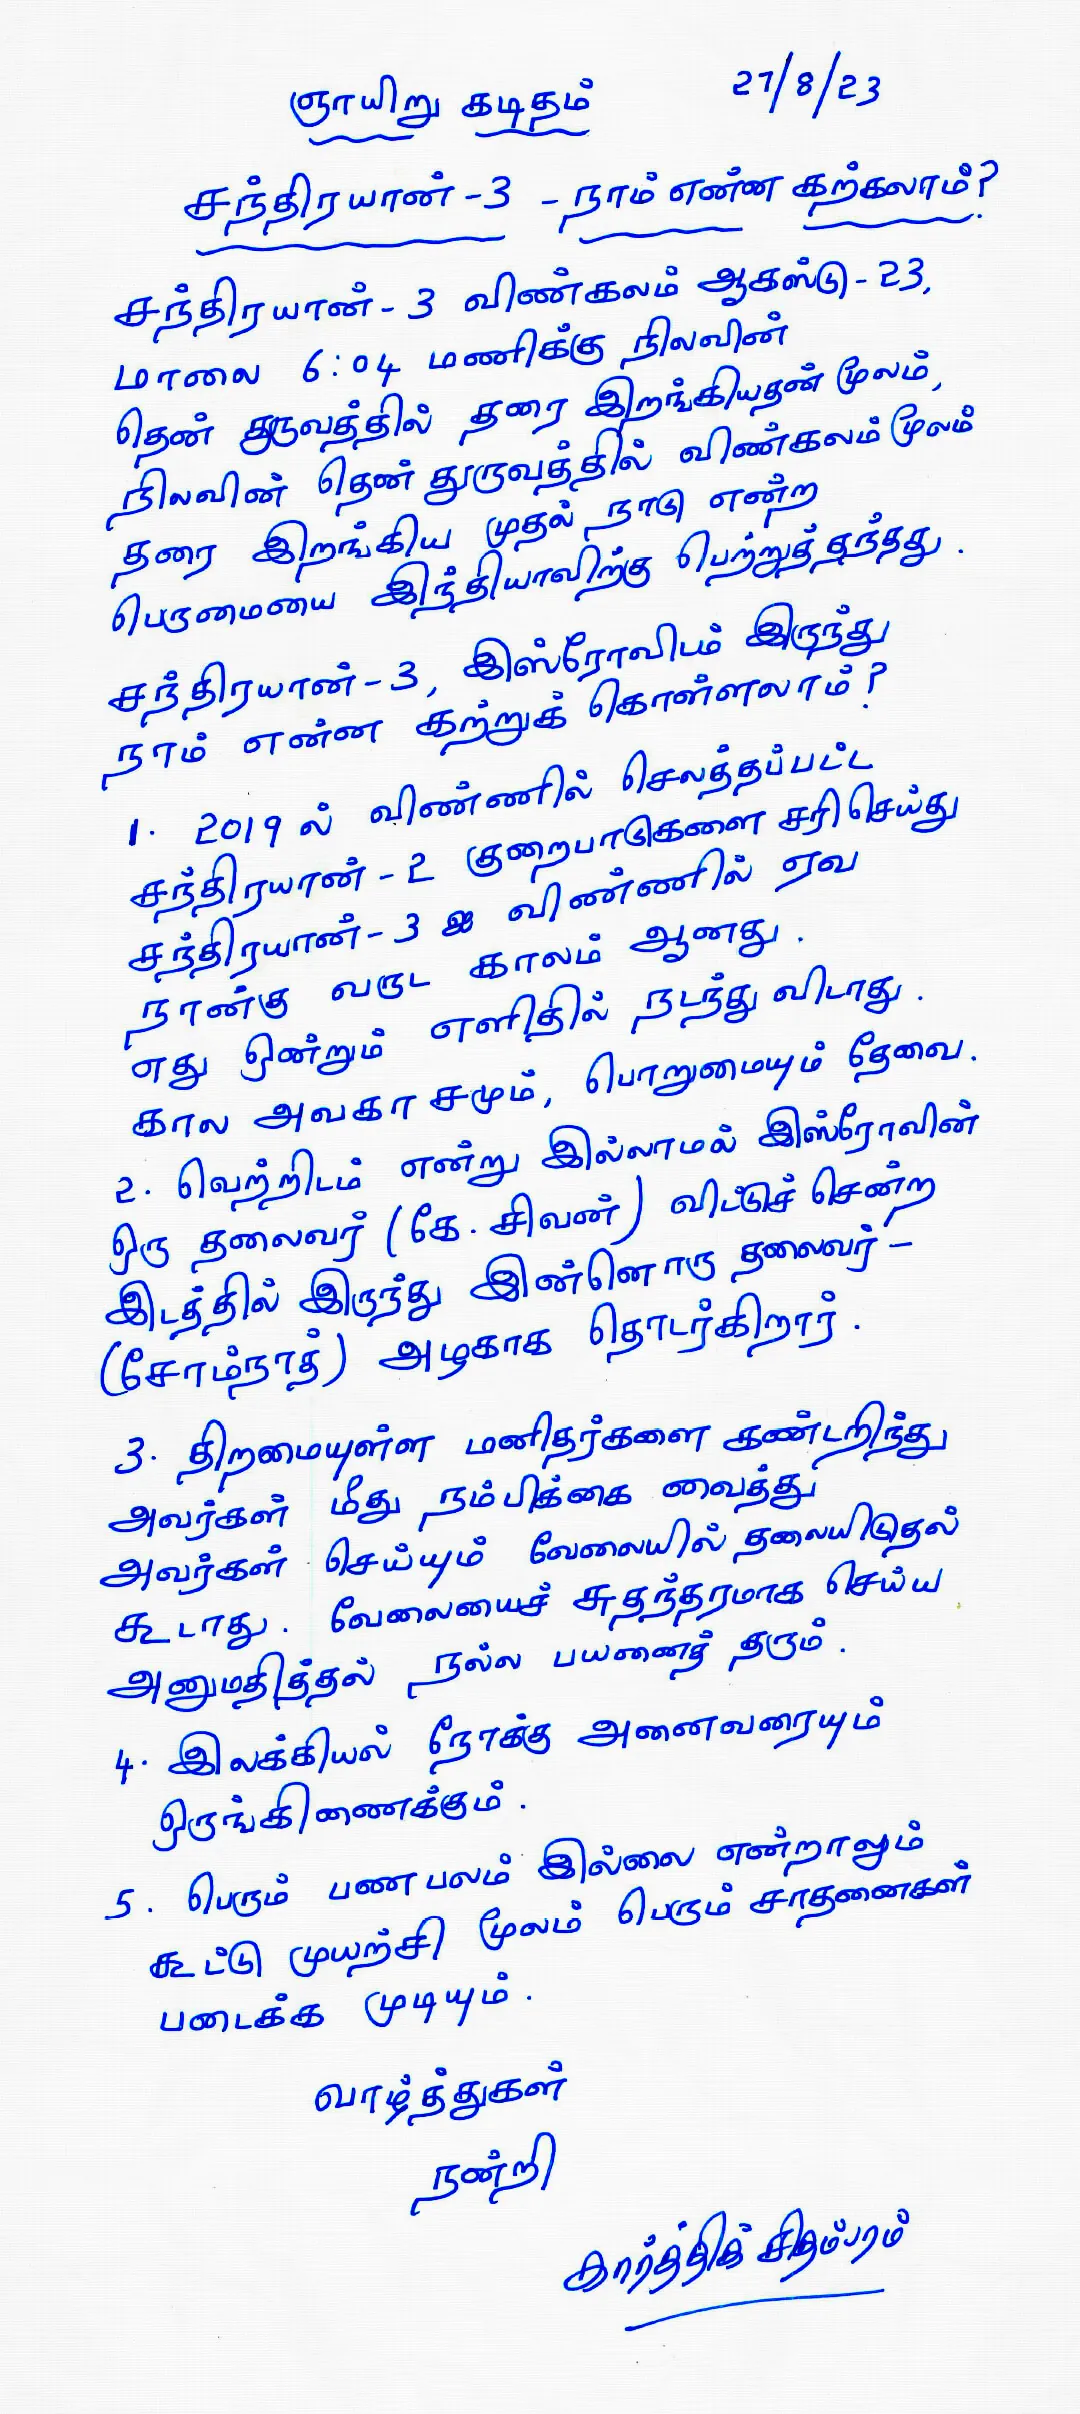 ஞாயிறு கடிதம் 27/8/23
சந்திரயான் -3 - நாம் என்ன கற்கலாம்?
சந்திரயான் - 3 விண்கலம் ஆகஸ்டு - 23,
மாலை 6:04 மணிக்கு நிலவின்
தென் துருவத்தில் தரை இறங்கியதன் மூலம்,
நிலவின் தென் துருவத்தில் விண்கலம் மூலம்
தரை இறங்கிய முதல் நாடு என்ற
பெருமையை இந்தியாவிற்கு பெற்றுத்தந்தது.
சந்திரயான் - 3, இஸ்ரோவிடம் இருந்து
நாம் என்ன கற்றுக் கொள்ளலாம்?
1. 2019 ல் விண்ணில் செலத்தப்பட்ட
சந்திரயான் - 2 குறைபாடுகளை சரி செய்து
சந்திரயான் - 3 ஐ விண்ணில் ஏவ
நான்கு வருட காலம் ஆனது.
எது ஒன்றும் எளிதில் நடந்து விடாது.
கால அவகாசமும், பொறுமையும் தேவை.
2. வெற்றிடம் என்று இல்லாமல் இஸ்ரோவின்
ஒரு தலைவர் (கே. சிவன்) விட்டுச் சென்ற
இடத்தில் இருந்து இன்னொரு தலைவர் -
(சோம்நாத்) அழகாக தொடர்கிறார்.
3. திறமையுள்ள மனிதர்களை கண்டறிந்து
அவர்கள் மீது நம்பிக்கை வைத்து
அவர்கள் செய்யும் வேலையில் தலையிடுதல்
கூடாது. வேலையைச் சுதந்தரமாக செய்ய
அனுமதித்தல் நல்ல பயனைத் தரும்.
4. இலக்கியல் நோக்கு அனைவரையும்
ஒருங்கிணைக்கும்.
5. பெரும் பண பலம் இல்லை என்றாலும்
கூட்டு முயற்சி மூலம் பெரும் சாதனைகள்
படைக்க முடியும்.
வாழ்த்துகள்
நன்றி
கார்த்திக் சிதம்பரம்